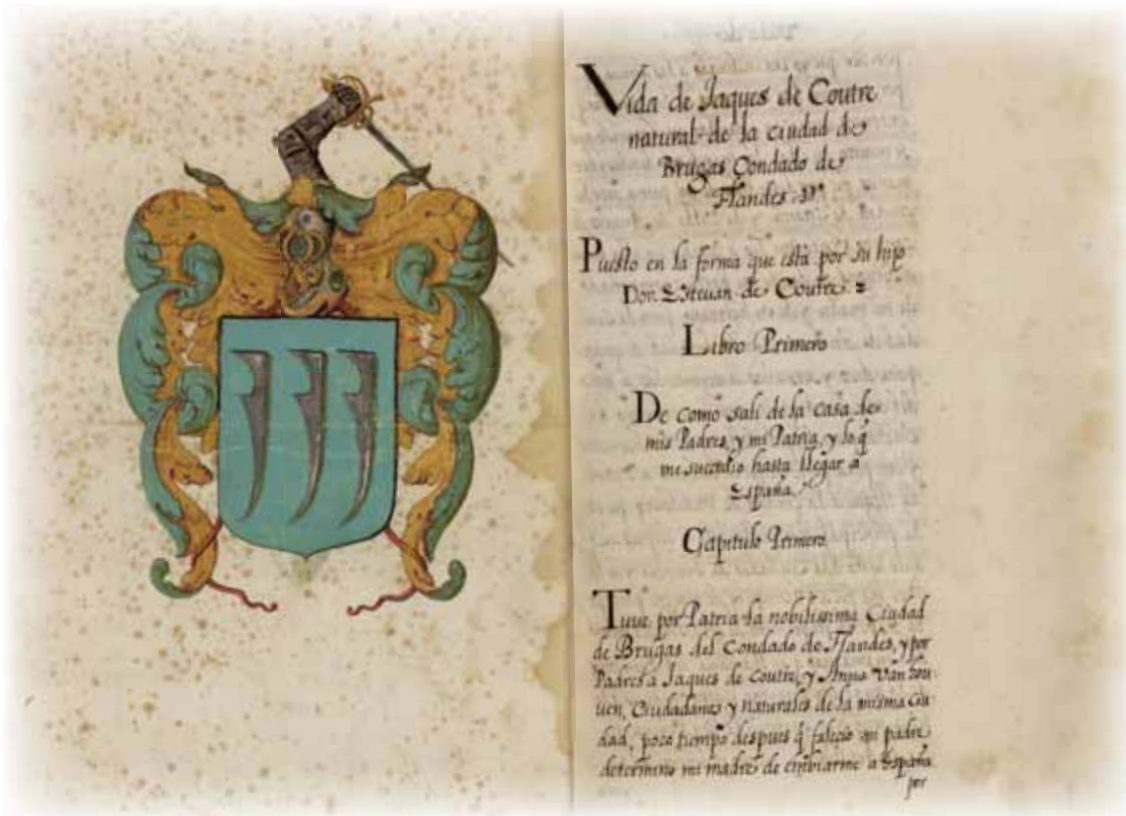 Vida de Jaques de Coutre
natural de la ciudad de
Brugas Condado de
Flandes
Puesto en la forma que està por su hijo
Don Esteuan de Coutre
Libro Primero
De como sali de la casa de
mis Padres, y mi Patria, y lo q̃
me sucedio hasta llegar a
España.
Capitulo Primero
Tuue por Patria la nobilissima Ciudad
de Brugas del Condado de Flandes, y por
Padres a Jaques de Coutre, y Anna Van
Ciudadanos y naturales de la misma Ciu
dad, poco tiempo despues q̃ falecio mi padre
determino mi madre de embiarme a España
por